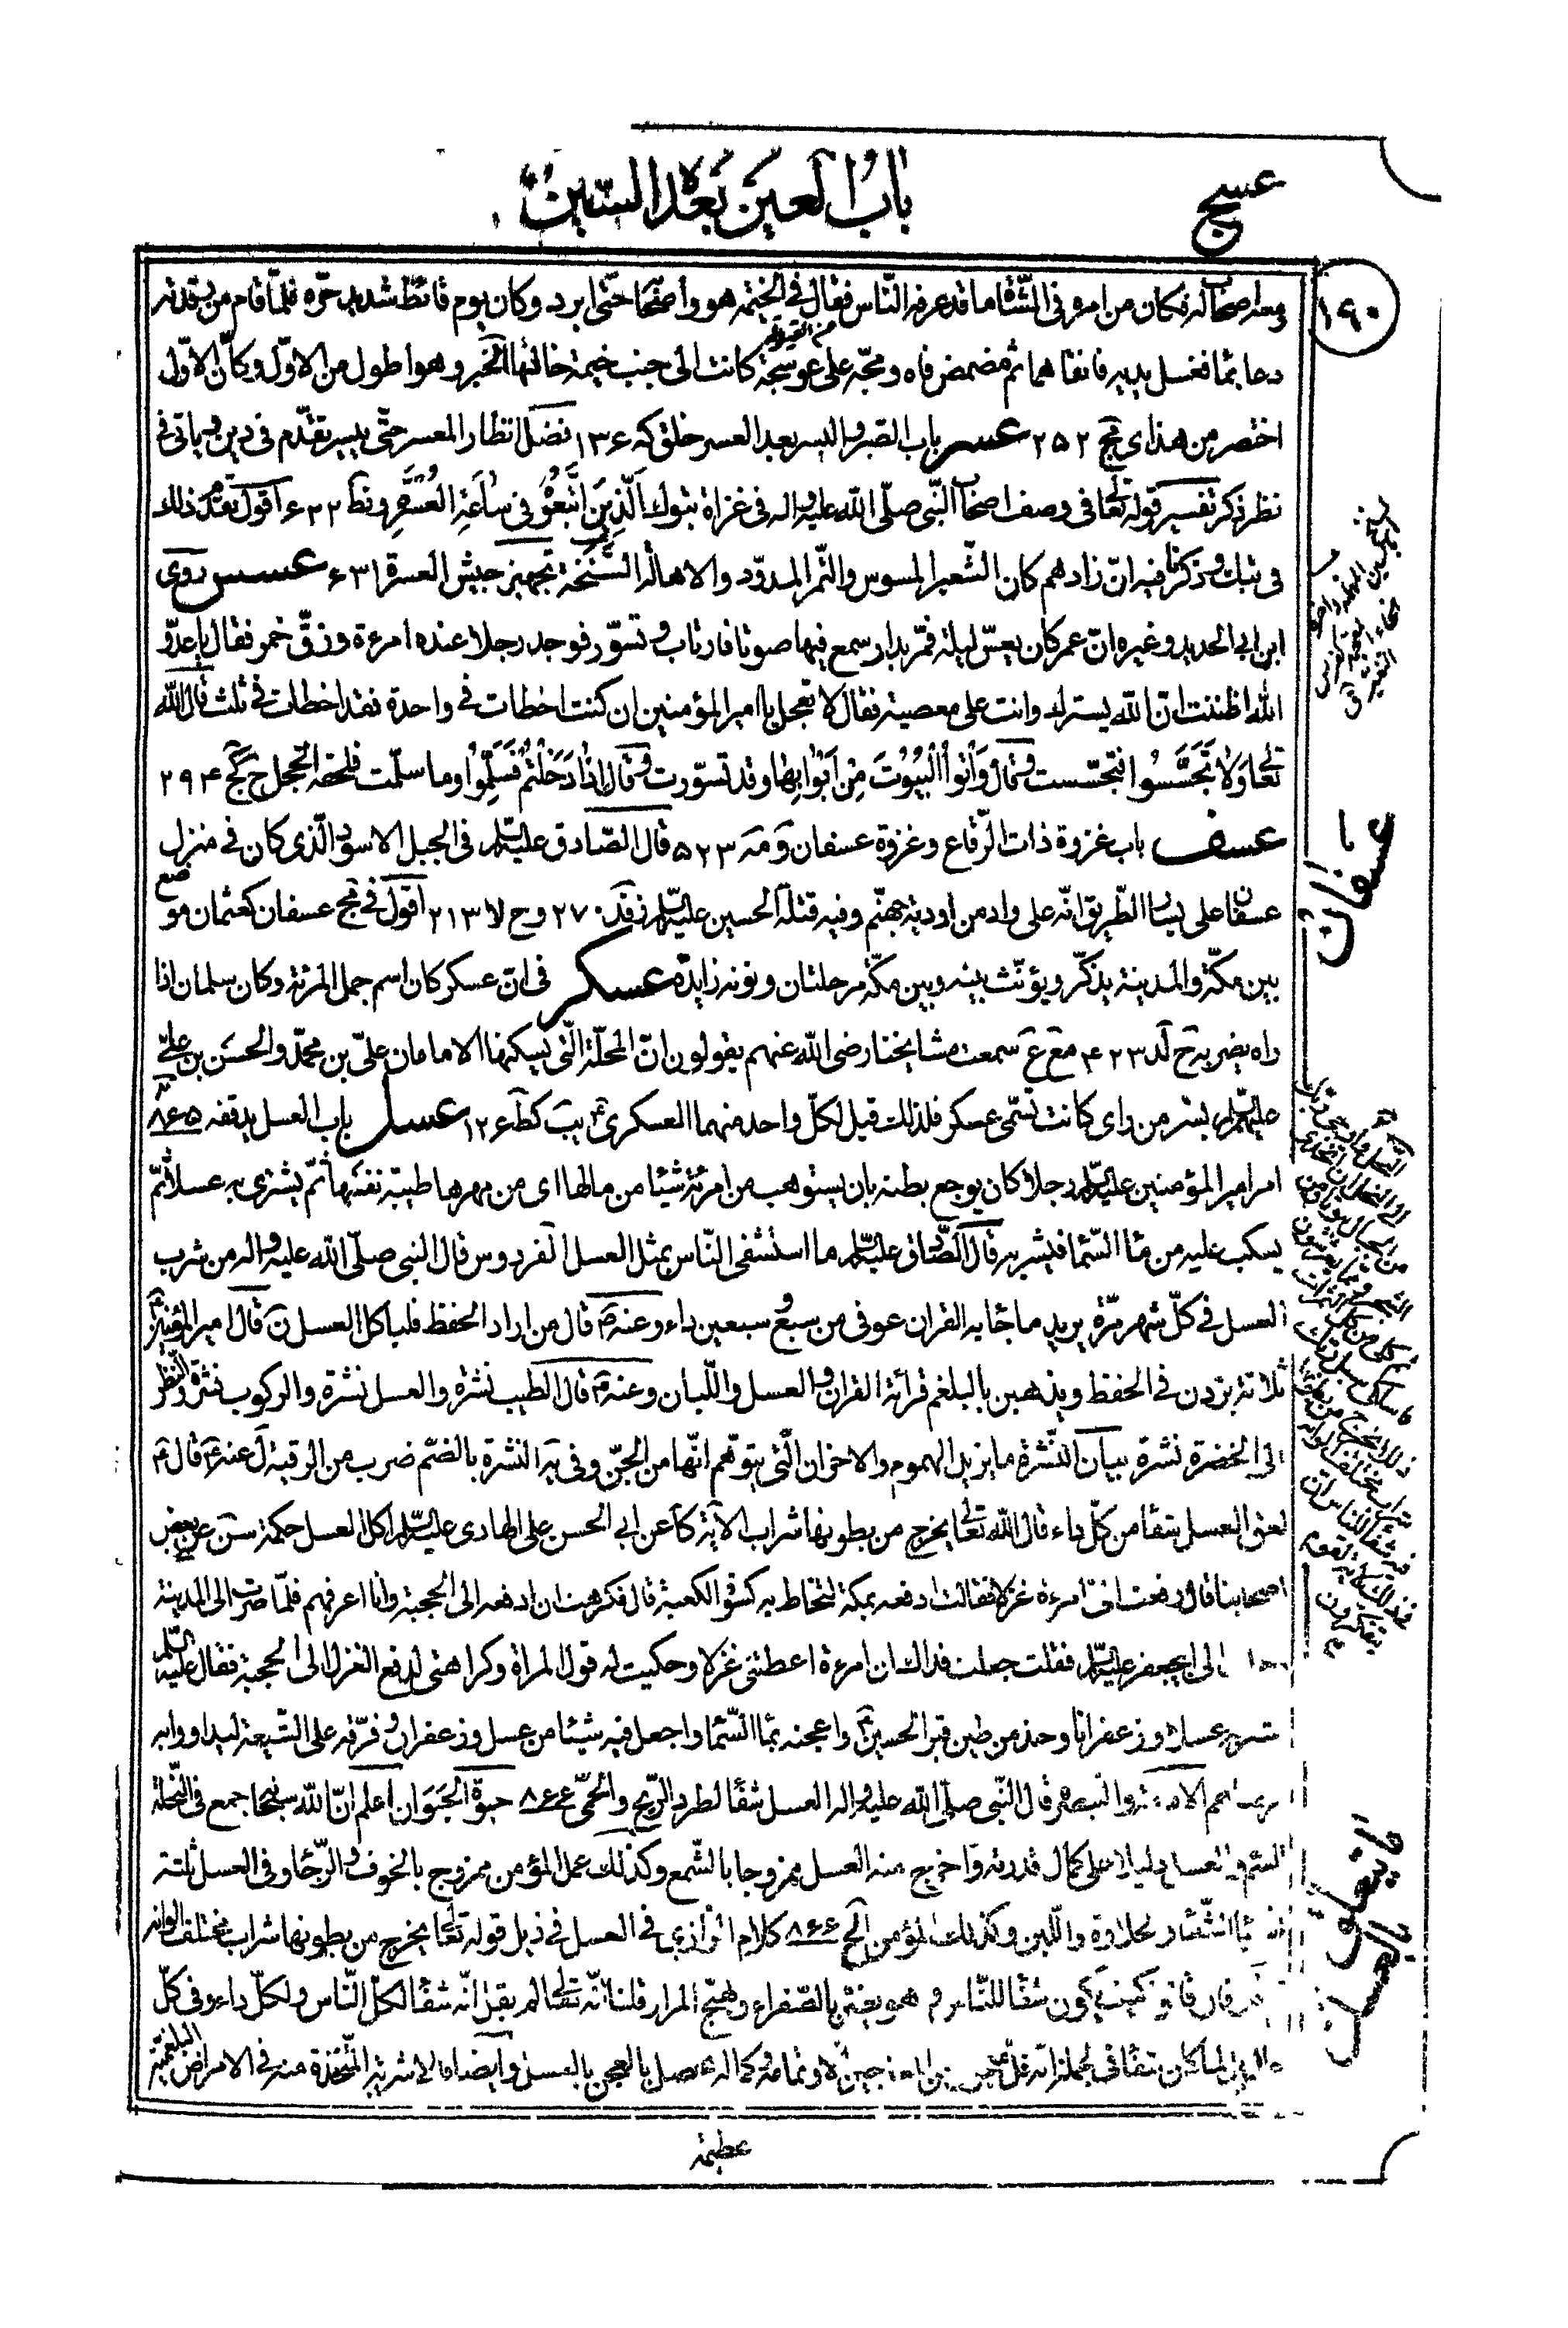 عسج
باب العين بعد السّين
١٩٠
ومعه اصحاب له فكان من امره فى الشّاة ما قد عرفه النّاس فقال فى الخيمة هو واصحابه حتّى ابرد وكان يوم قائظ شديد حرّه فلمّا قام من رقدته
دعا بماء فغسل يديه فانقاهما ثم مضمض فاه ومجّه على عوسجة كانت الى جنب خيمة خالتها الخبر وهو اطول من الاوّل وكانّ الاوّل
اختصر من هذا ى يج ٢٥٢ عسر باب الصّبر واليسر بعد العسر خلق كه ١٣٦ فضل انظار المعسر حتّى ييسر تقدّم فى دين ويأتى فى
نظر ذكر تفسير قوله تعالى فى وصف اصحاب النّبى صلّى الله عليه واله فى غزاة تبوك الّذين اتّبعوه فى ساعة العسرة و نط ٦٢٢ اقول تقدّم ذلك
فى تبك وذكرنا فيه انّ زادهم كان الشّعير المسوس والتّمر المدوّد والاهالة السّنخة تجهيز جيش العسرة ٦٣١ عسس روى
ابن ابى الحديد وغيره انّ عمر كان يعسّ ليلة فمرّ بدار سمع فيها صوتا فارتاب وتسوّر فوجد رجلا عنده امرءة وزقّ خمر فقال يا عدوّ
الله اظننت انّ الله يسترك وانت على معصية فقال لا تعجل يا امير المؤمنين ان كنت اخطات فى واحدة فقد اخطات فى ثلث قال الله
تعالى ولا تجسّسوا فتجسّست وقال واتوا البيوت من ابوابها وقد تسوّرت وقال اذا دخلتم فسلّموا وما سلّمت فلحقه الخجل ح كج ٢٩٤
عسف باب غزوة ذات الرّقاع وغزوة عسفان و مه ٥٢٣ قال الصّادق عليه السّلم فى الجبل الاسود الّذى كان فى منزل
عسفان على يسار الطّريق انّه على واد من اودية جهنّم وفيه قتلة الحسين عليه السّلم ز قد ٢٧٠ وح لا ٢١٣ اقول فى مج عسفان كعثمان موضع
بين مكّة والمدينة يذكّر ويؤنّث بينه وبين مكّة مرحلتان ونونه زايدة عسكر فى انّ عسكر كان اسم جمل المرئة وكان سلمان اذا
راه يضربه ح لد ٤٢٣ مع ع سمعت مشايخنا رضى الله عنهم يقولون انّ المحلّة الّتى يسكنها الامامان علىّ بن محمّد والحسن بن علىّ
عليهم السّلم بسرّ من راى كانت تسمّى عسكر فلذلك قيل لكلّ واحد منهما العسكرى يب كط ١٢٦ عسل باب العسل يد قفه ٨٦٥
امر امير المؤمنين عليه السّلم رجلا كان يوجع بطنه بان يستوهب من امرئته شيئا من مالها اى من مهرها طيبة نفسها ثمّ يشترى به عسلا ثمّ
يسكب عليه من ماء السّماء فيشربه قال الصّادق عليه السّلم ما استشفى النّاس بمثل العسل الفردوس قال النبى صلّى الله عليه واله من شرب
العسل فى كلّ شهر مرّة يريد ما جاء به القران عوفى من سبع وسبعين داء وعنه ص قال من اراد الحفظ فلياكل العسل ن قال امير المؤمنين
ثلاثة يزدن فى الحفظ ويذهبن بالبلغم قرائة القران والعسل واللّبان وعنه قال الطيب نشرة والعسل نشرة والركوب نشرة والنّظر
الى الخضرة نشرة بيان النّشرة ما يزيل الهموم والاحزان الّتى يتوهّم انّها من الجنّ وفى يه النشرة بالضمّ ضرب من الرقية ل عنه قال
لعق العسل شفاء من كلّ داء قال الله تعالى يخرج من بطونها شراب الاية كا عن ابى الحسن على الهادى عليه السّلم اكل العسل حكمة سن عن بعض
اصحابنا قال دفعت الىّ امرءة غزلا فقالت ادفعه بمكّة لتخاط به كسوة الكعبة قال فكرهت ان ادفعه الى الحجبة وانا اعرفهم فلمّا صرت الى المدينة
الى ابى جعفر عليه السّلم فقلت جعلت فداك ان امرءة اعطتنى غزلا وحكيت له قول المراة وكراهتى لدفع الغزل الى الحجبة فقال عليه السّلم
اشتر به عسلا وزعفرانا وخذ من طين قبر الحسين واعجنه بماء السّماء واجعل فيه شيئا من عسل وزعفران وفرّقه على الشّيعة ليداووا به
مرضاهم قال النّبى صلّى الله عليه واله العسل شفاء لطرد الرّيح والحمّى ع ٨٦٦ حيوة الحيوان اعلم انّ الله سبحانه جمع فى النّحلة
السّم والعسل دليلا على كمال قدرته واخرج منه العسل ممزوجا بالشّمع وكذلك عمل المؤمن ممزوج بالخوف والرّجاء وفى العسل ثلثة
اشياء الشّفاء والحلاوة واللّين وكذلك المؤمن الخ ٨٦٦ كلام الرّازى فى العسل فى ذيل قوله تعالى يخرج من بطونها شراب مختلف الوانه
فان قالوا كيف يكون شفاء للنّاس وهو يضرّ بالصّفراء ويهيّج المرار قلنا انّه تعالى لم يقل انّه شفاء لكلّ النّاس ولكلّ داء وفى كلّ
حال بل لما كان شفاء فى الجملة انّه قلّ معجون من المعاجين الاّ وتمامه وكماله يحصل بالعجن بالعسل وايضا فالاشربة المتّخذة منه فى الامراض البلغميّة
عظيمة
عسفان
العسل